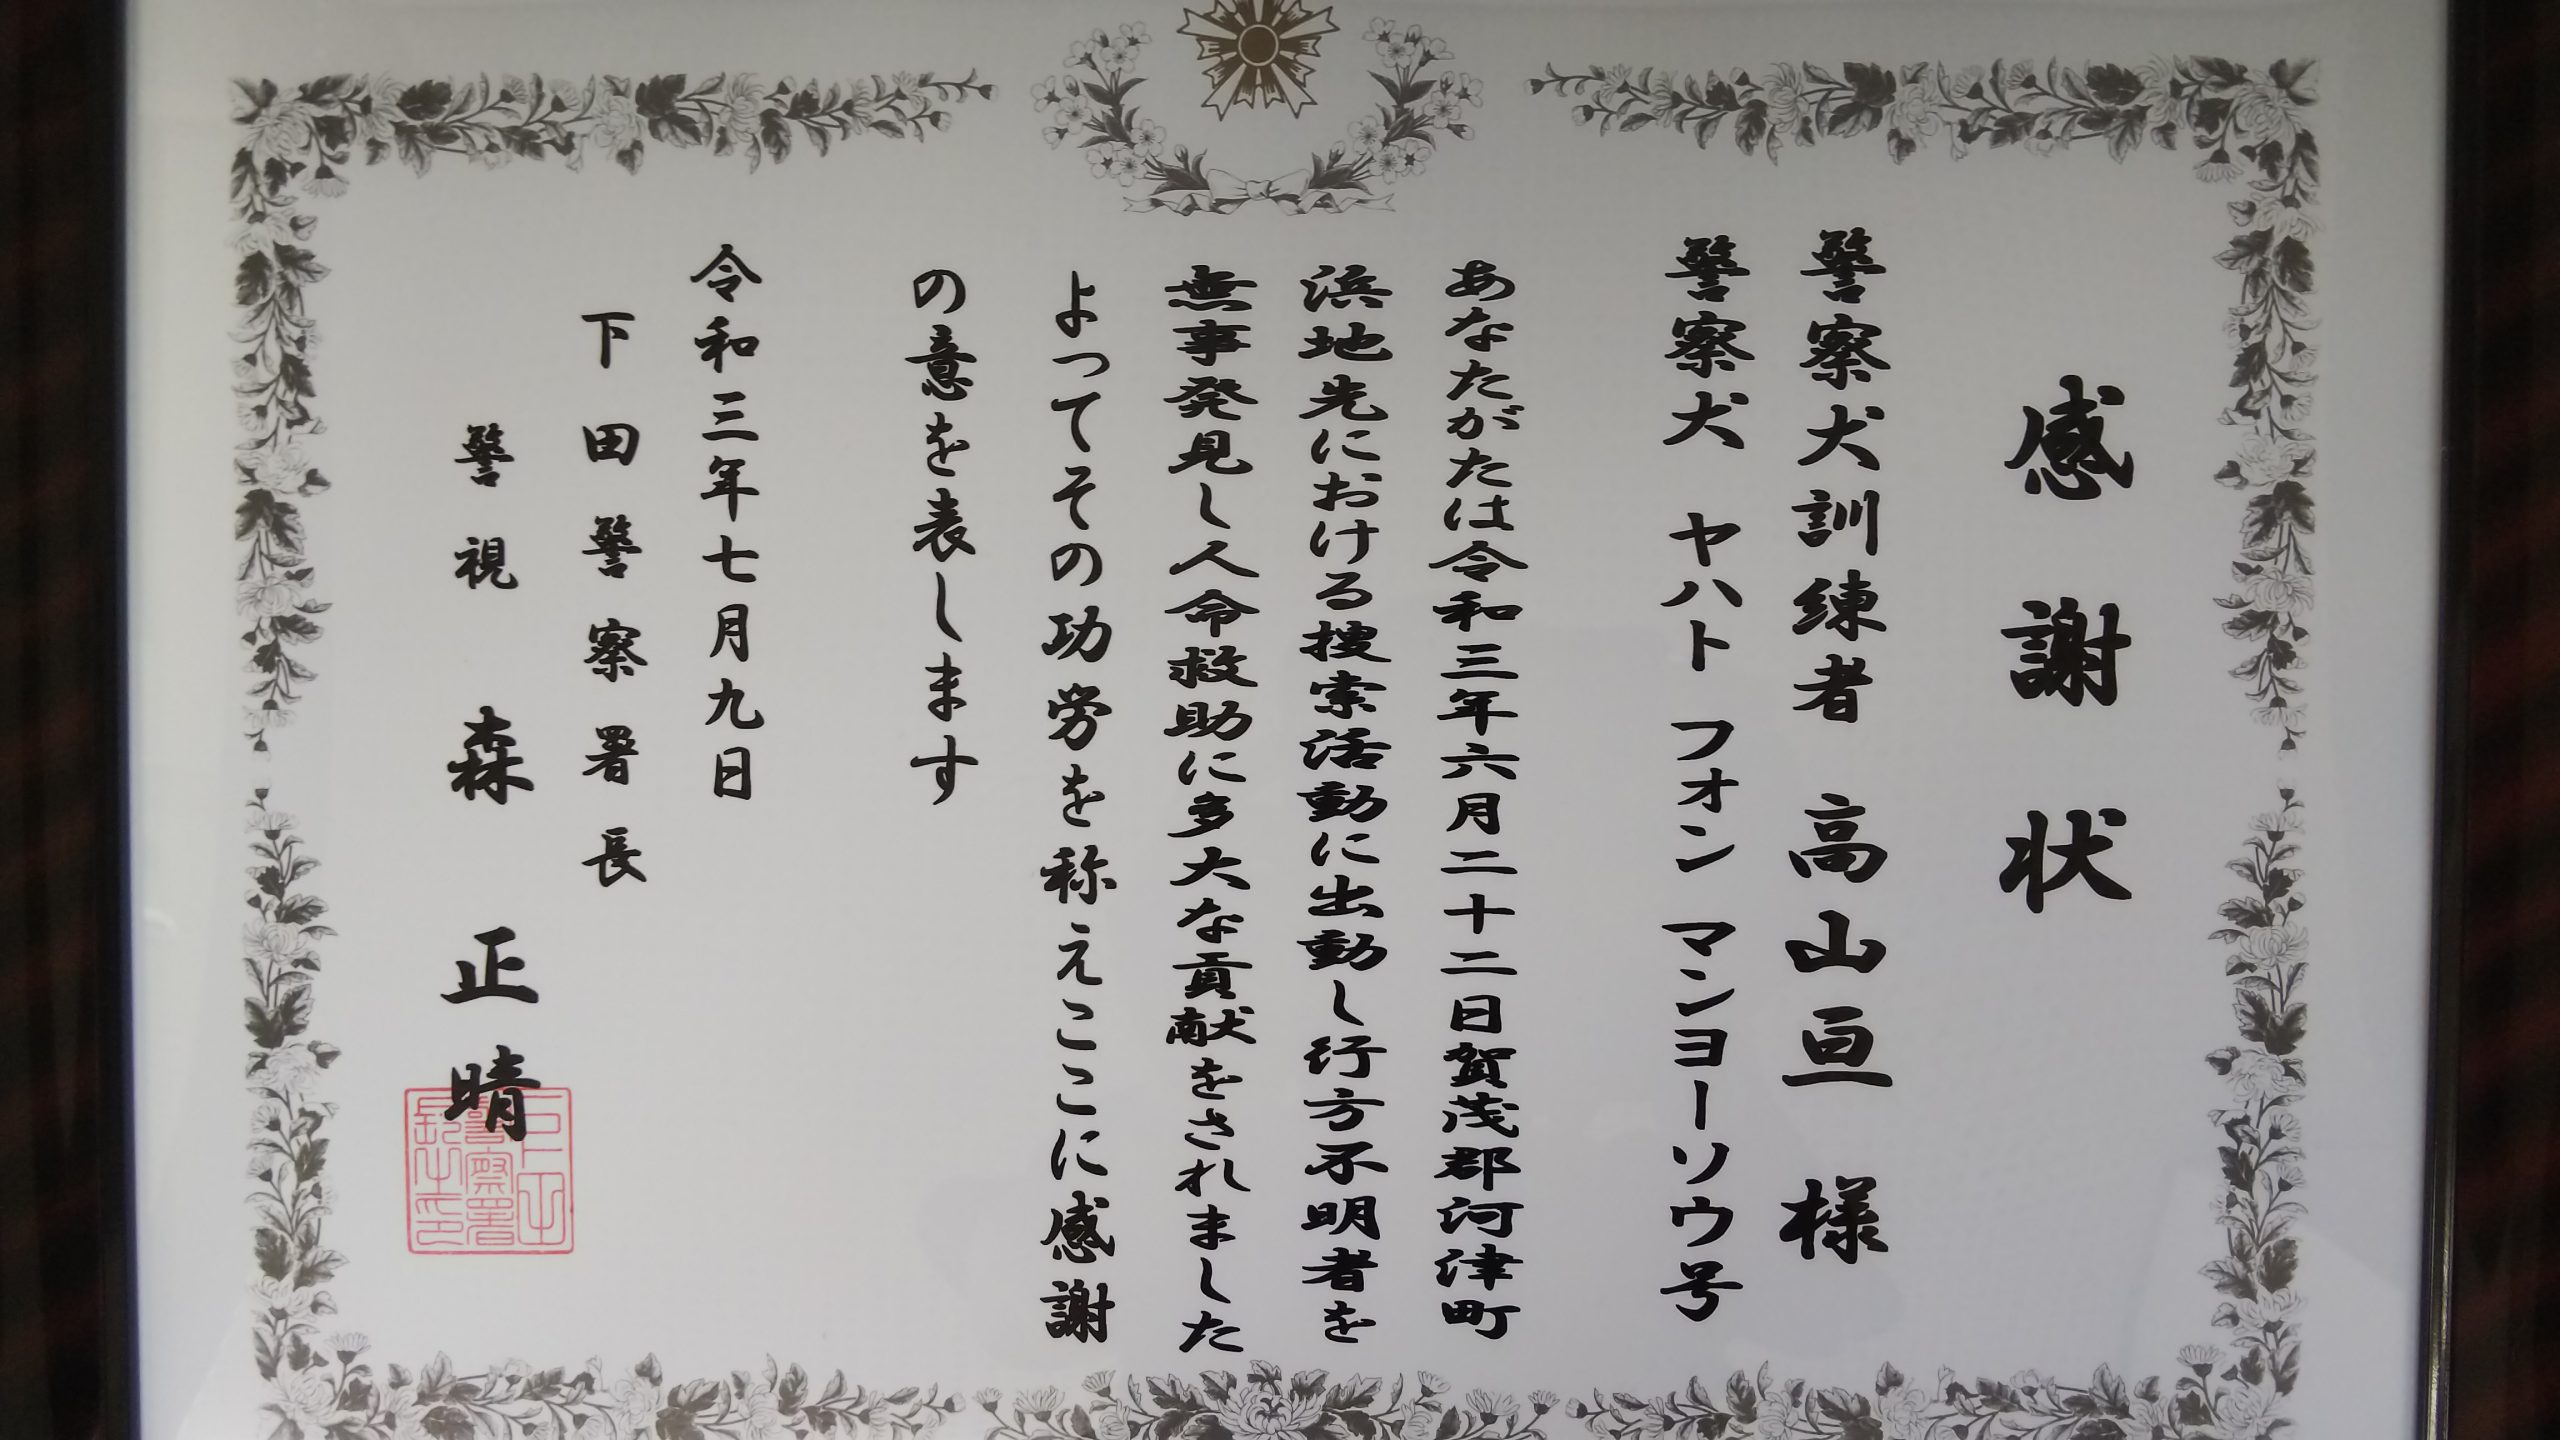 感謝状
警察犬訓練者 高山亘 様
警察犬 ヤハト フォン マンヨーソウ号
あなたがたは令和三年六月二十二日賀茂郡河津町
浜地先における捜索活動に出動し行方不明者を
無事発見し人命救助に多大な貢献をされました
よってその功労を称えここに感謝
の意を表します
令和三年七月九日
下田警察署長
警視 森 正晴
下田
警察署
長之印